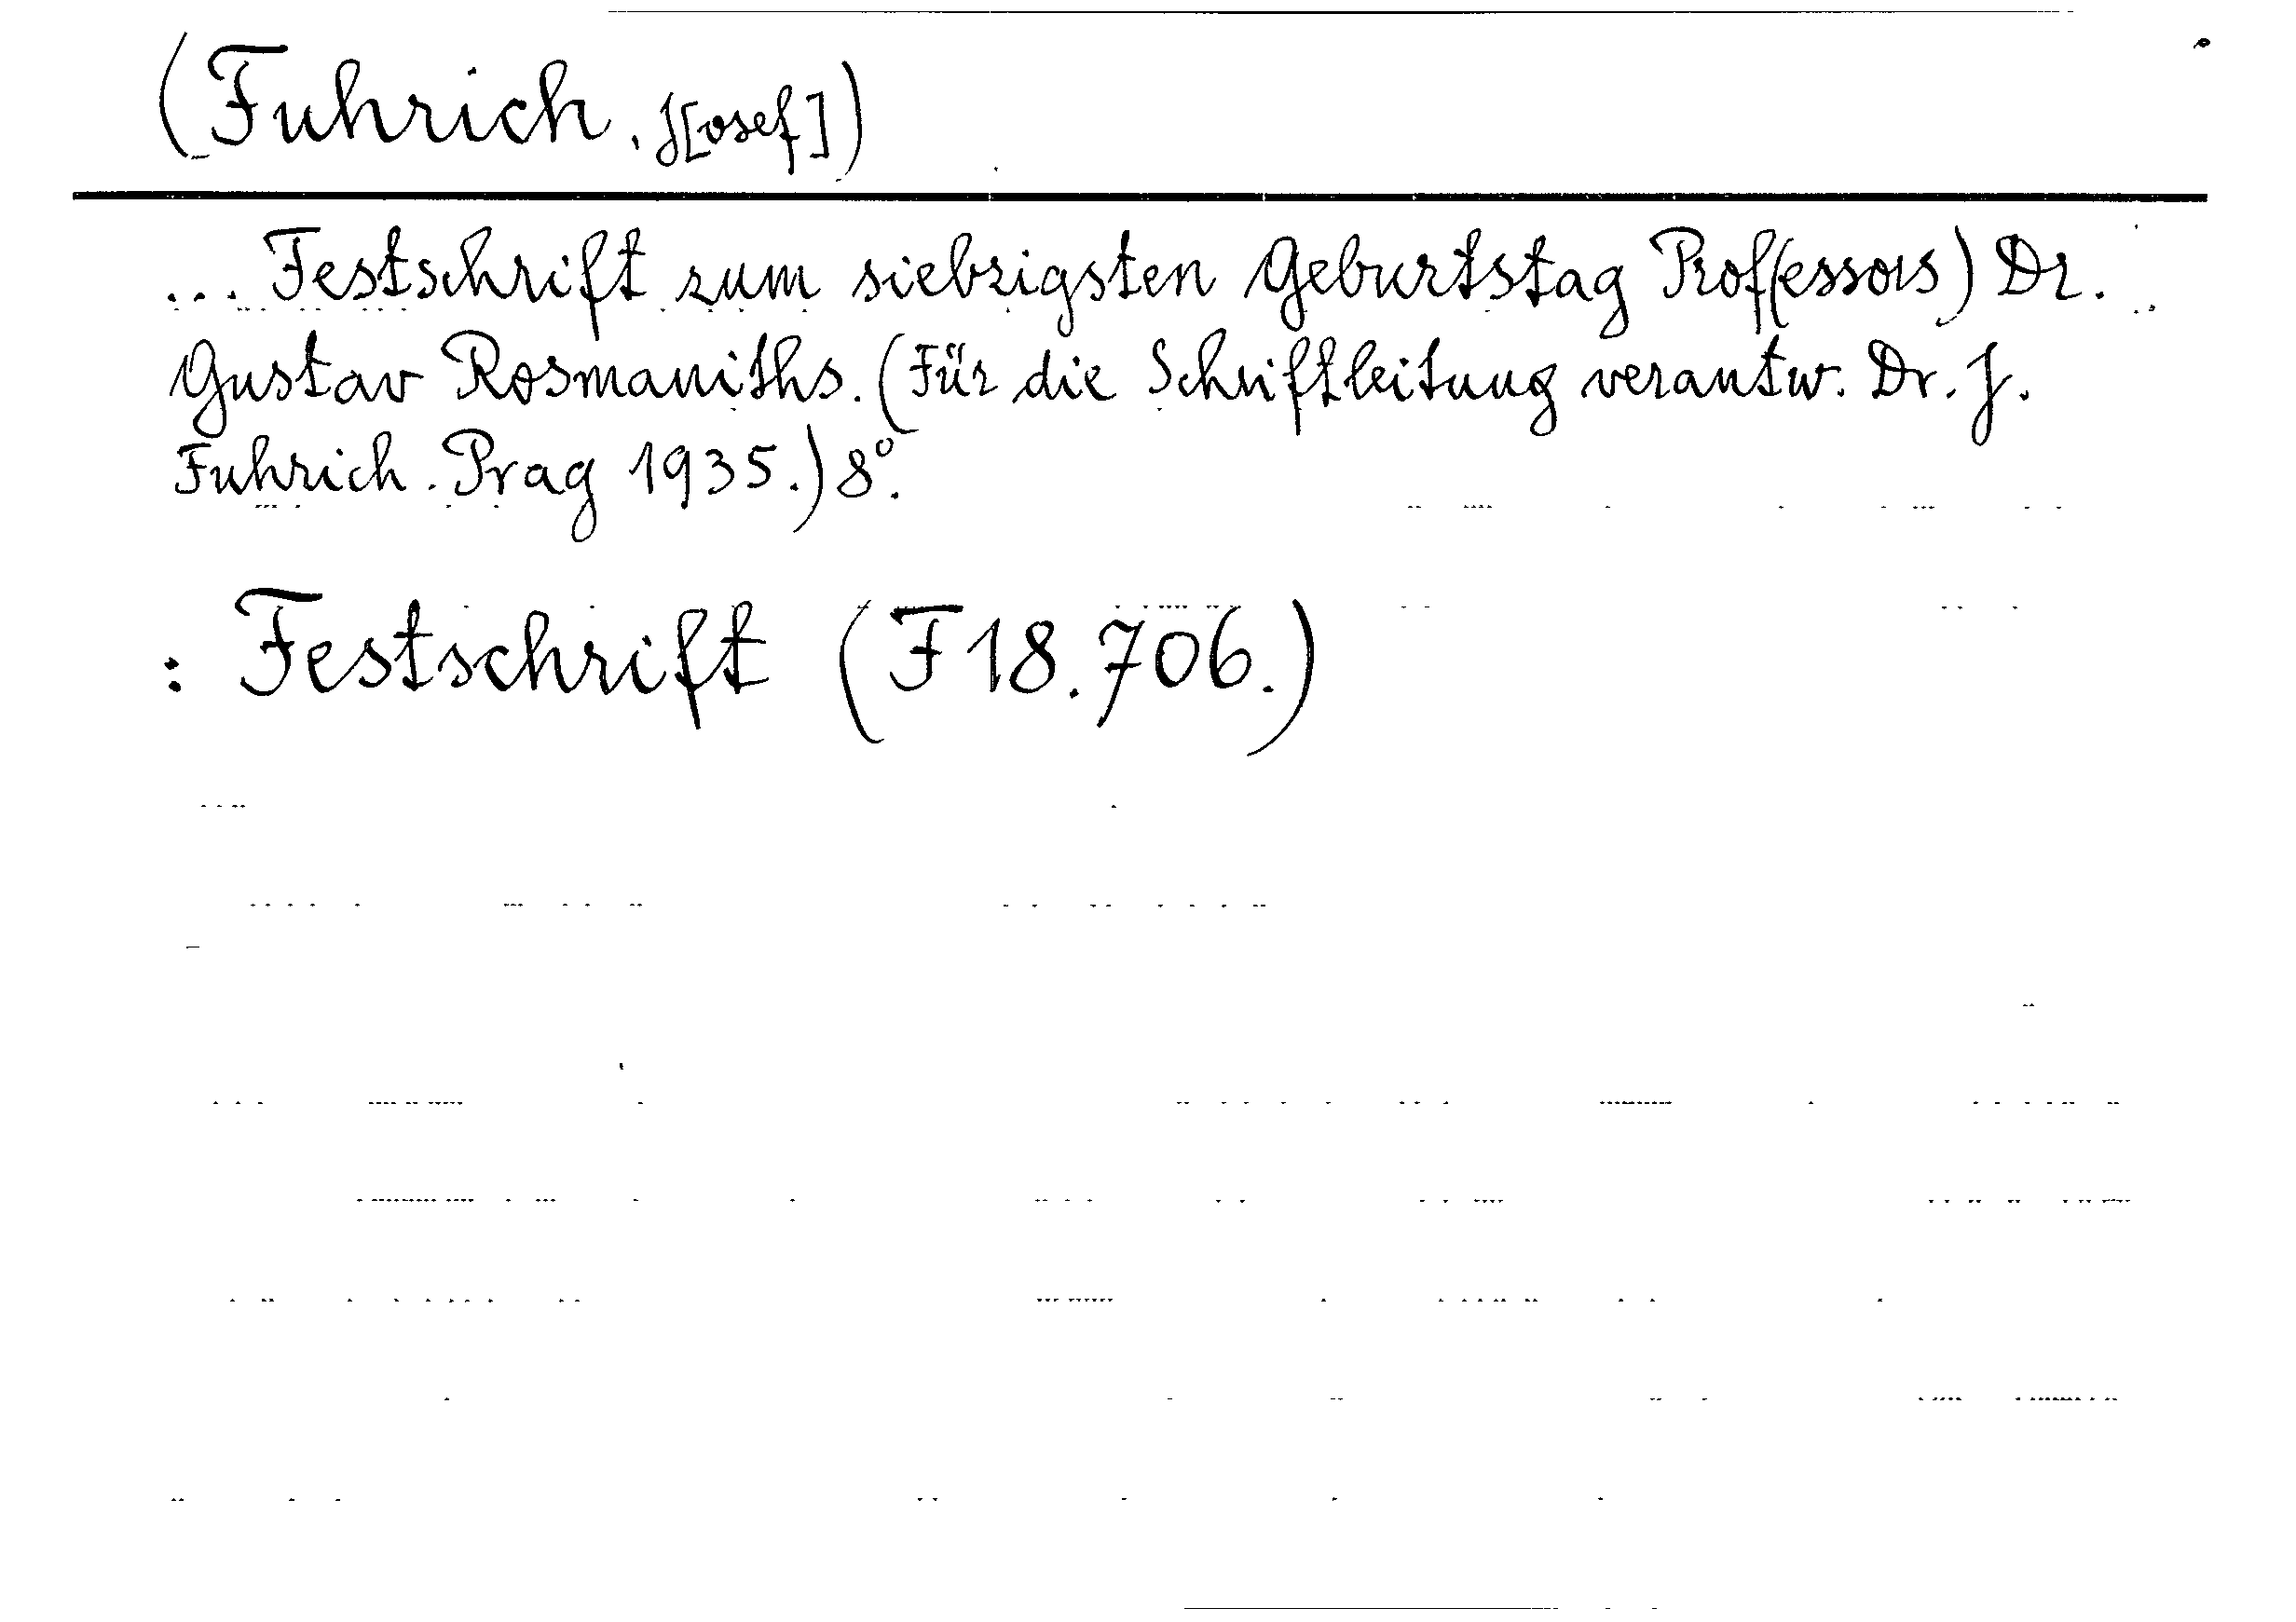 (Fuhrich, J[osef])
... Festschrift zum siebzigsten Geburtstag Prof(essors) Dr.
Gustav Rosmaniths. (Für die Schriftleitung verantw. Dr. J.
Fuhrich. Prag 1935.) 8º.
: Festschrift (F 18.706.)